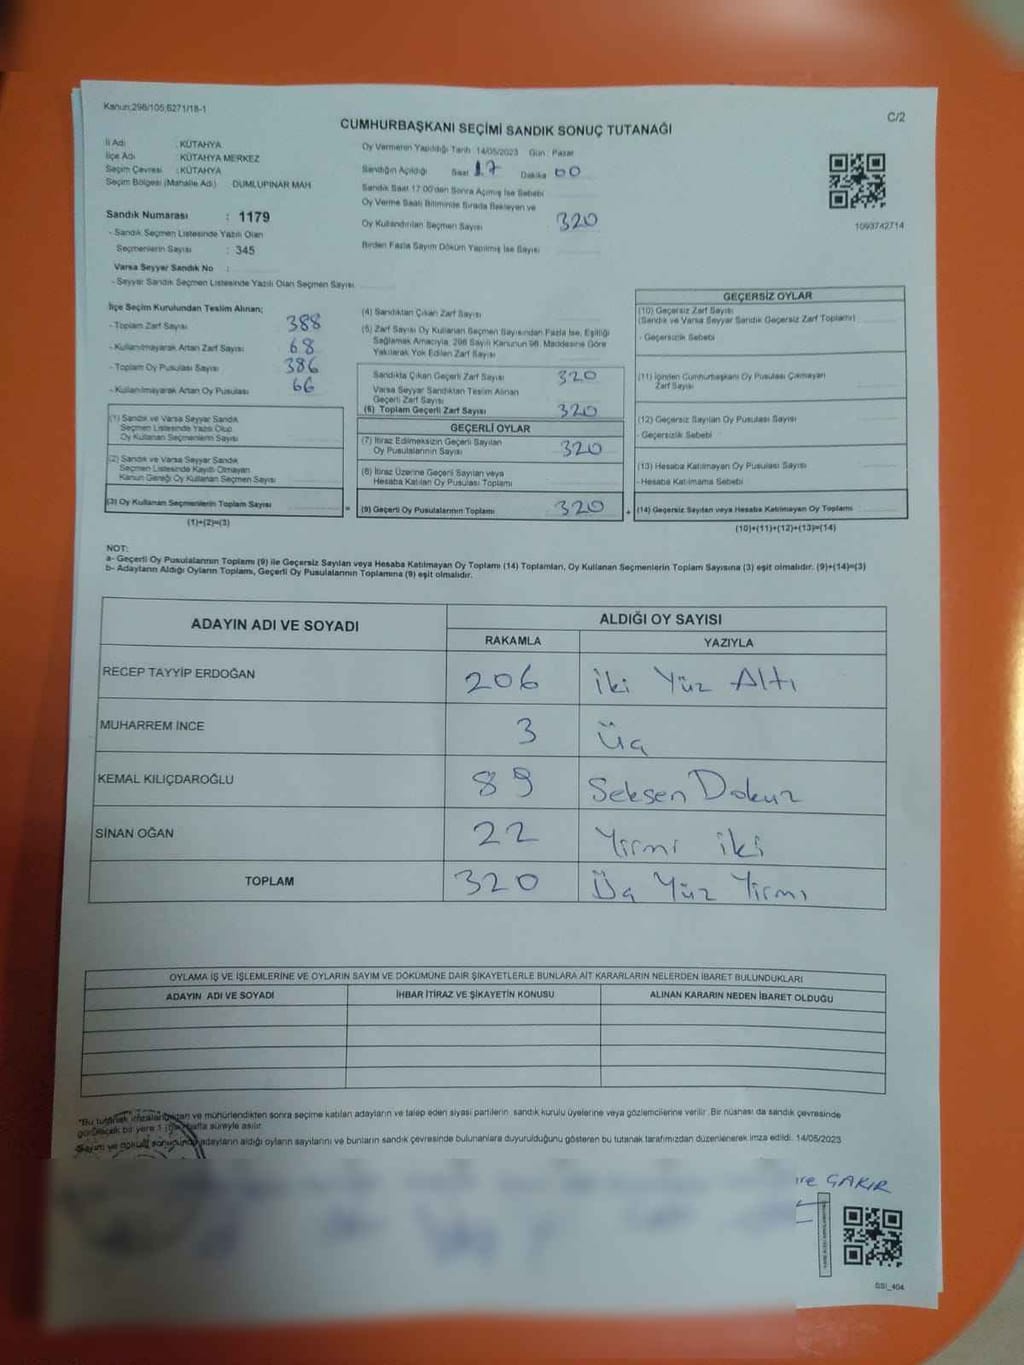 Kanun:298/105,6271/18-1
C/2
CUMHURBAŞKANI SEÇİMİ SANDIK SONUÇ TUTANAĞI
İl Adı : KÜTAHYA
İlçe Adı : KÜTAHYA MERKEZ
Seçim Çevresi : KÜTAHYA
Seçim Bölgesi (Mahalle Adı) DUMLUPINAR MAH
Sandık Numarası : 1179
- Sandık Seçmen Listesinde Yazılı Olan
Seçmenlerin Sayısı : 345
Varsa Seyyar Sandık No :
- Seyyar Sandık Seçmen Listesinde Yazılı Olan Seçmen Sayısı
Oy Vermenin Yapıldığı Tarih :14/05/2023 Gün : Pazar
Sandığın Açıldığı Saat 17 Dakika 00
Sandık Saat 17:00'den Sonra Açılmış İse Sebebi
Oy Verme Saati Bitiminde Sırada Bekleyen ve
Oy Kullandırılan Seçmen Sayısı 320
Birden Fazla Sayım Döküm Yapılmış İse Sayısı
1093742714
İlçe Seçim Kurulundan Teslim Alınan;
- Toplam Zarf Sayısı 388
- Kullanılmayarak Artan Zarf Sayısı 68
- Toplam Oy Pusulası Sayısı 386
- Kullanılmayarak Artan Oy Pusulası 66
(1) Sandık ve Varsa Seyyar Sandık
Seçmen Listesinde Yazılı Olup
Oy Kullanan Seçmenlerin Sayısı
(2) Sandık ve Varsa Seyyar Sandık
Seçmen Listesinde Kayıtlı Olmayan
Kanun Gereği Oy Kullanan Seçmen Sayısı
(3) Oy Kullanan Seçmenlerin Toplam Sayısı
(1)+(2)=(3)
(4) Sandıktan Çıkan Zarf Sayısı
(5) Zarf Sayısı Oy Kullanan Seçmen Sayısından Fazla İse, Eşitliği
Sağlamak Amacıyla, 298 Sayılı Kanunun 98. Maddesine Göre
Yakılarak Yok Edilen Zarf Sayısı
Sandıkta Çıkan Geçerli Zarf Sayısı 320
Varsa Seyyar Sandıktan Teslim Alınan
Geçerli Zarf Sayısı
(6) Toplam Geçerli Zarf Sayısı 320
GEÇERLİ OYLAR
(7) İtiraz Edilmeksizin Geçerli Sayılan
Oy Pusulalarının Sayısı 320
(8) İtiraz Üzerine Geçerli Sayılan veya
Hesaba Katılan Oy Pusulası Toplamı
= (9) Geçerli Oy Pusulalarının Toplamı 320
GEÇERSİZ OYLAR
(10) Geçersiz Zarf Sayısı
(Sandık ve Varsa Seyyar Sandık Geçersiz Zarf Toplamı)
- Geçersizlik Sebebi
(11) İçinden Cumhurbaşkanı Oy Pusulası Çıkmayan
Zarf Sayısı
(12) Geçersiz Sayılan Oy Pusulası Sayısı
- Geçersizlik Sebebi
(13) Hesaba Katılmayan Oy Pusulası Sayısı
- Hesaba Katılmama Sebebi
+ (14) Geçersiz Sayılan veya Hesaba Katılmayan Oy Toplamı
(10)+(11)+(12)+(13)=(14)
NOT:
a- Geçerli Oy Pusulalarının Toplamı (9) ile Geçersiz Sayılan veya Hesaba Katılmayan Oy Toplamı (14) Toplamları, Oy Kullanan Seçmenlerin Toplam Sayısına (3) eşit olmalıdır. (9)+(14)=(3)
b- Adayların Aldığı Oyların Toplamı, Geçerli Oy Pusulalarının Toplamına (9) eşit olmalıdır.
ADAYIN ADI VE SOYADI
ALDIĞI OY SAYISI
RAKAMLA YAZIYLA
RECEP TAYYİP ERDOĞAN 206 İki Yüz Altı
MUHARREM İNCE 3 Üç
KEMAL KILIÇDAROĞLU 89 Seksen Dokuz
SİNAN OĞAN 22 Yirmi iki
TOPLAM 320 Üç Yüz Yirmi
OYLAMA İŞ VE İŞLEMLERİNE VE OYLARIN SAYIM VE DÖKÜMÜNE DAİR ŞİKAYETLERLE BUNLARA AİT KARARLARIN NELERDEN İBARET BULUNDUKLARI
ADAYIN ADI VE SOYADI İHBAR İTİRAZ VE ŞİKAYETİN KONUSU ALINAN KARARIN NEDEN İBARET OLDUĞU
"Bu tutanak imzalandıktan ve mühürlendikten sonra seçime katılan adayların ve talep eden siyasi partilerin sandık kurulu üyelerine veya gözlemcilerine verilir. Bir nüshası da sandık çevresinde
görülecek bir yere 1 hafta süreyle asılır.
Sayım ve döküm sonucunda adayların aldığı oyların sayılarını ve bunların sandık çevresinde bulunanlara duyurulduğunu gösteren bu tutanak tarafımızdan düzenlenerek imza edildi. 14/05/2023
ÇAKIR
SSI_404